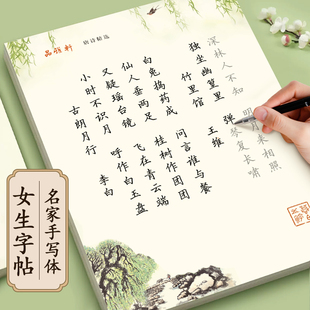 唐诗精选
古朗月行 李白
小时不识月 呼作白玉盘
又疑瑶台镜 飞在青云端
仙人垂两足 桂树作团团
白兔捣药成 问言谁与餐
竹里馆 王维
独坐幽篁里 弹琴复长啸
深林人不知 明月来相照
名家手写体
女生字帖